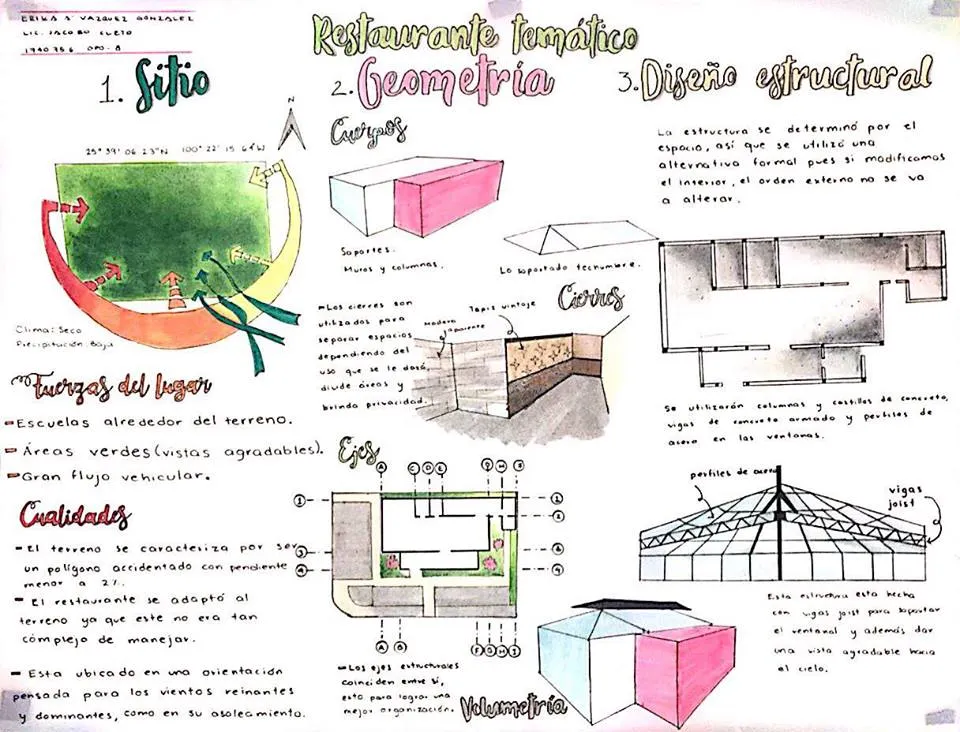 ERIKA S. VAZQUEZ GONZALEZ
LIC. JACOBO CUETO
1940756 GPO. 8
Restaurante temático
1. Sitio
25° 39' 06.23"N 100° 22' 15.64"W
N
Clima: Seco
Precipitación: Baja
Fuerzas del lugar
Escuelas alrededor del terreno.
Áreas verdes (vistas agradables).
Gran flujo vehicular.
Cualidades
- El terreno se caracteriza por ser
un polígono accidentado con pendiente
menor a 2%.
- El restaurante se adaptó al
terreno ya que este no era tan
complejo de manejar.
- Esta ubicado en una orientación
pensada para los vientos reinantes
y dominantes, como en su asoleamiento.
2. Geometría
Cuerpos
Soportes.
Muros y columnas.
Lo soportado techumbre.
Cierres
- Los cierres son
utilizados para
separar espacios
dependiendo del
uso que se le dará,
divide áreas y
brinda privacidad.
Madera
aparente
Tapiz vintage
Ejes
A C D E G H I
1
3
4
1
2
4
A B F G H I
- Los ejes estructurales
coinciden entre sí,
esto para lograr una
mejor organización.
Volumetría
3. Diseño estructural
La estructura se determinó por el
espacio, así que se utilizó una
alternativa formal pues si modificamos
el interior, el orden externo no se va
a alterar.
Se utilizarán columnas y castillos de concreto,
vigas de concreto armado y perfiles de
acero en las ventanas.
perfiles de acero
vigas
joist
Esta estructura esta hecha
con vigas joist para soportar
el ventanal y además dar
una vista agradable hacia
el cielo.